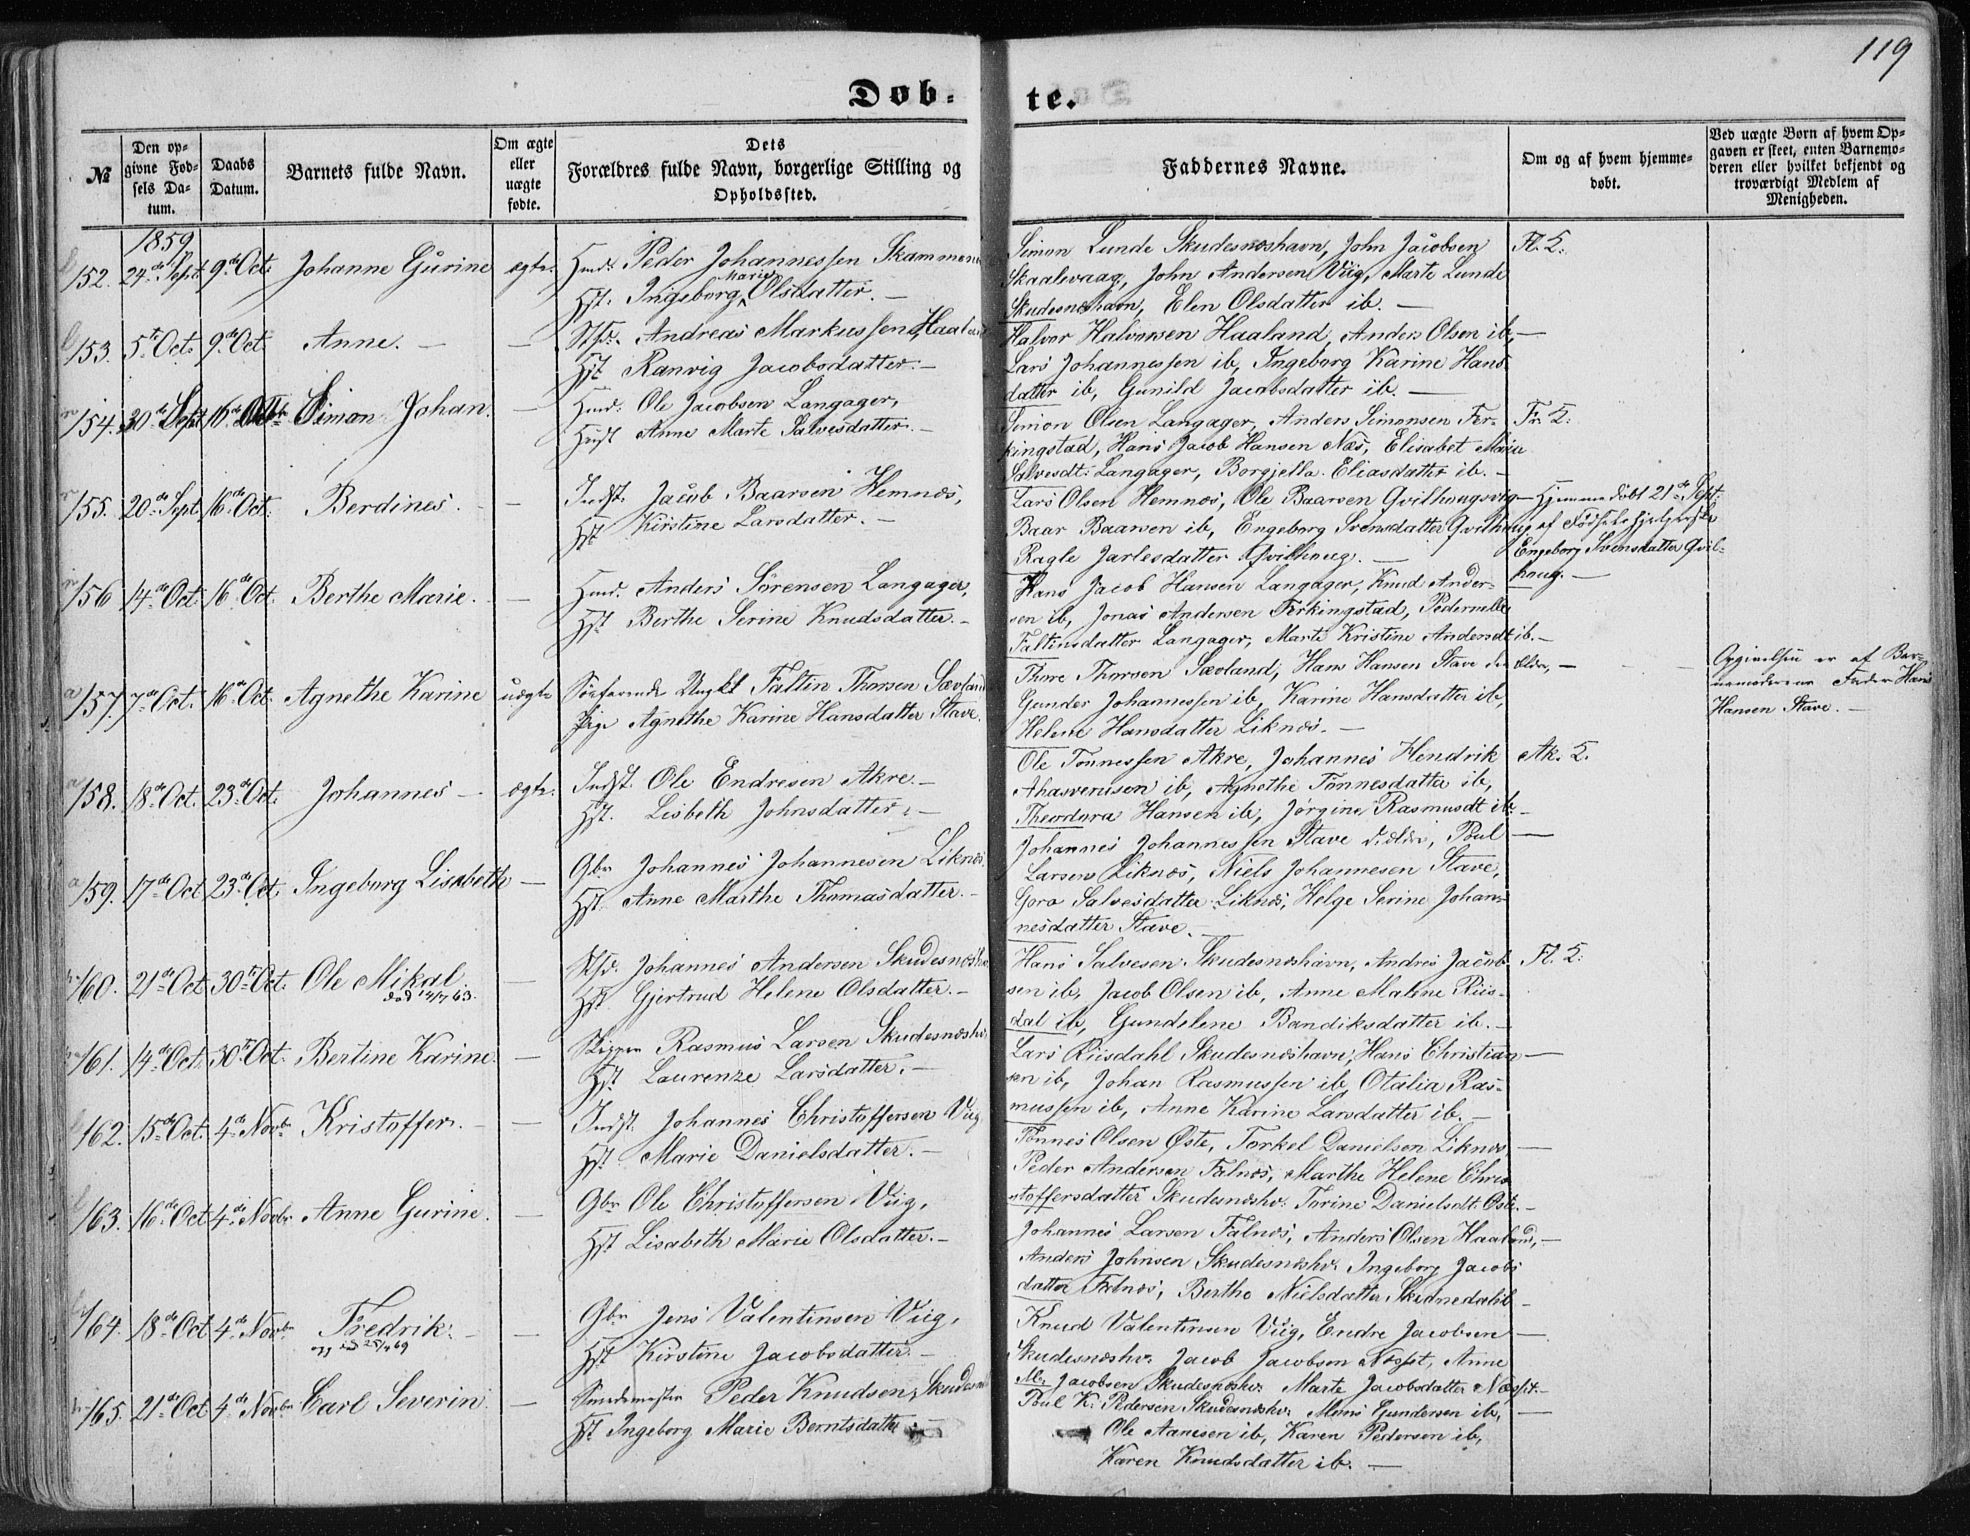 119
Døb-
te.
№
Den op-
givne Fød-
sels Da-
tum.
Daabs
Datum.
Barnets fulde Navn.
Om ægte
eller
uægte
fødte.
Dets
Forældres fulde Navn, borgerlige Stilling og
Opholdssted.
Faddernes Navne.
Om og af hvem hjemme-
døbt.
Ved uægte Børn af hvem Op-
gaven er skeet, enten Barnemo-
deren eller hvilket bekjendt og
troværdigt Medlem af
Menigheden.
1859
152. 24de Sept. 9de Oct. Johanne Gurine ægte.
Hmd. Peder Johannessen
Marie
Hst. Ingeborg Olsdatter. —
Simon Lunde Skudesnæshavn, John Jacobsen
Skaalevaag, John Andersen Viig, Marte Lunde
Skudesnæshavn, Elen Olsdatter ib. —
Fl. S.
153. 5te Oct. 9de Oct. Anne. — —
Andreas Markussen,
Hst. Ranvig Jacobsdatter. —
Halvor Halvorsen Haaland, Anders Olsen ib, —
Lars Johannessen ib, Ingeborg Karine Hans-
datter ib, Gunild Jacobsdatter ib. —
154. 30de Sept. 16de Simon Johan. —
Hmd. Ole Jacobsen Langager,
Hust. Anne Marte Salvesdatter. —
Simon Olsen Langager, Anders Simonsen Fer-
kingstad, Hans Jacob Hansen Næs, Elisabet Marie
Salvesdt. Langager, Borgjella Eliasdatter ib. —
Fr. S.
155. 20de Sept. 16de Oct. Berdines. —
Indst. Jacob Baarsen Hemnæs,
Hst. Kirstine Larsdatter. —
Lars Olsen Hemnæs, Ole Baarsen
Baar Baarsen ib, Engeborg Svensdatter Qvilhaug
Ragle Jarlesdatter Qvilhaug. —
Hjemmedøbt 21de Sept.
af Fødselshjelpersken
Engeborg Svensdatter Qvil-
haug. —
156 14de Oct. 16de Oct. Berthe Marie. —
Hmd. Anders Sørensen Langager,
Hst. Berthe Serine Knudsdatter. —
Hans Jacob Hansen Langager, Knud Ander-
sen ib, Jonas Andersen Ferkingstad, Pedernelle
Faltinsdatter Langager, Marte Kristine Andersdt. ib. —
157. 7de Oct. 16de Oct. Agnethe Karine uægte
Søefarende Ungkl. Faltin Thorsen Sævland
Pige Agnethe Karine Hansdatter Stave.
Thore Thorsen Sævland, Hans Hansen Stave den ældre, —
Gunder Johannessen ib, Karine Hansdatter ib,
Helene Hansdatter Liknæs. —
Opgivelsen er af Bar-
nemoderens Fader Hans
Hansen Stave. —
158. 18de Oct. 23de Oct. Johannes — ægte.
Indst. Ole Endresen Akre. —
Hst. Lisbeth Johnsdatter. —
Ole Tønnessen Akre, Johannes Hendrik
Ahasverusen ib, Agnethe Tønnesdatter ib,
Theodora Hansen ib, Jørgine Rasmusdt. ib. —
Ak. S.
159. 17de Oct. 23de Oct. Ingeborg Lisabeth —
Gbr. Johannes Johannesen Liknæs.
Hst. Anne Marthe Thomasdatter. —
Johannes Johannessen Stave d. ældre, Poul —
Larsen Liknæs, Niels Johannesen Stave,
Goro Salvesdatter Liknæs, Helge Serine Johan-
nesdatter Stave. —
160. 21de Oct. 30te Oct. Ole Mikal. —
død 14/7 63.
Johannes Andersen
Hst. Gjertrud Helene Olsdatter. —
Hans Salvesen Skudesnæshavn, Andres Jacob-
sen ib, Jacob Olsen ib, Anne Malene Riis-
dal ib, Gundelene Bandiksdatter ib. —
Fl. S.
161. 14de Oct. 30te Oct. Bertine Karine. —
Skipper Rasmus Larsen Skudesnæshv.
Hst. Laurenze Larsdatter. —
Lars Riisdahl Skudesnæshavn, Hans Christian- —
sen ib, Johan Rasmussen ib, Otalia Ras-
mussen ib, Anne Karine Larsdatter ib. —
162. 15de Oct. 4de Novbr. Kristoffer. — —
Indst. Johannes Christoffersen Viig
Hst. Marie Danielsdatter. —
Tønnes Olsen Øste, Torkel Danielsen Liknæs —
Peder Andersen Falnæs, Marthe Helene Chri-
stoffersdatter Skudesnæshv. Torine Danielsdt. Øste. —
163. 16de Oct. 4de Novbr. Anne Gurine. —
Gbr. Ole Christoffersen Viig,
Hst. Lisabeth Marie Olsdatter. —
Johannes Larsen Falnæs, Anders Olsen Haaland, —
Anders Johnsen Skudesnæshv. Ingeborg Jacobs
datter Falnæs, Berthe Nielsdatter —
164. 18de Oct. 4de Novbr. Fredrik. — —
Gbr. Jens Valentinsen Viig,
Hst. Kirstine Jacobsdatter. —
Knud Valentinsen Viig, Endre Jacobsen —
Skudesnæshv. Jacob Jacobsen Næsset, Anne
M. Jacobsen Skudesnæshv. Marte Jacobsdatter Næsset. —
165. 21de Oct. 4de Novbr. Carl Severin. —
Smedemester Peder Knudsen,
Hst. Ingeborg Marie Berntsdatter
Poul K. Pedersen Skudesnæshv. Mons Gundersen ib, —
Ole Aanesen ib, Karen Pedersen ib,
Karen Knudsdatter ib. —